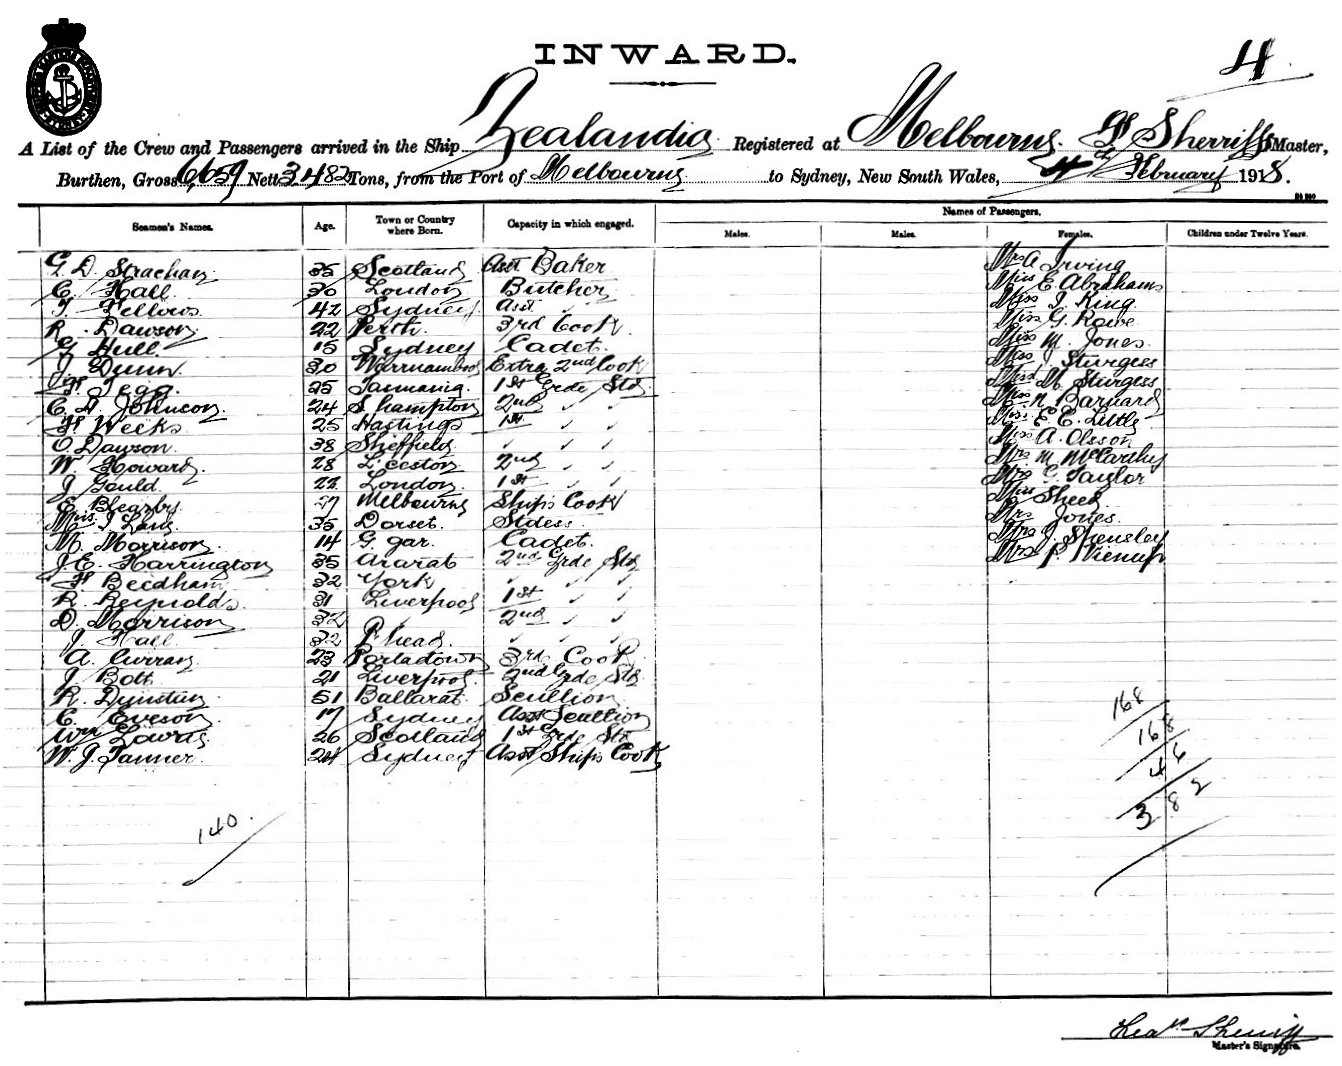 INWARD.
4
A List of the Crew and Passengers arrived in the Ship Zealandia Registered at Melbourne. Sherriff Master,
Burthen, Gross 6659 Nett 3482 Tons, from the Port of Melbourne to Sydney, New South Wales, 4th February 1918.
Names of Passengers.
Seamen's Names. Age. Town or Country where Born. Capacity in which engaged. Males. Males. Females. Children under Twelve Years.
G. D. Strachan 35 Scotland Asst Baker Mrs A Irving
C. Hall 30 London Butcher Miss E Abrahams
T. Fellows 42 Sydney Asst " Miss J. King
R. Dawson 22 Perth. 3rd Cook Miss G. Rowe
G Hull 15 Sydney Cadet. Miss M. Jones
J. Dunn 30 Warrnambool Extra 2nd Cook Miss J Sturgess
H. Tegg. 25 Tasmania. 1st Grde Std Miss M. Sturgess
C. H. Johnson. 24 S.hampton 2nd " " Miss N Barnard
H. Weeks 25 Hastings 1st " " Miss E. E. Little
O. Dawson 38 Sheffield " " " Miss A. Olsson
W. Howard. 28 L'cester 2nd " " Mrs M. McCarthy
J Gould. 22 London. 1st " " Mrs G Taylor
E Bleasby 27 Melbourne Ship's Cook Miss Sheed
Miss J Lang 35 Dorset. Stdess. Mrs Jones.
M. Morrison. 14 G. gar. Cadet. Mrs J. Spensley
J. E. Harrington 35 Ararat 2nd Grde Std Mrs P.
H Beedham 32 York " " "
R. Reynolds. 31 Liverpool 1st " "
D. Morrison 32 " 2nd " "
J. Hall 32 head. " " "
A. Curran 23 Portadown 3rd Cook
J. Bolt 21 Liverpool 2nd Grde Std
R. Dunstan 51 Ballarat Scullion
C. Eveson 17 Sydney Asst Scullion
Wm Lowrie 26 Scotland 1st Grde Std
W. J. Tanner. 24 Sydney Asst Ship's Cook
168
168
46
382
140.
Sherriff
Master's Signature.